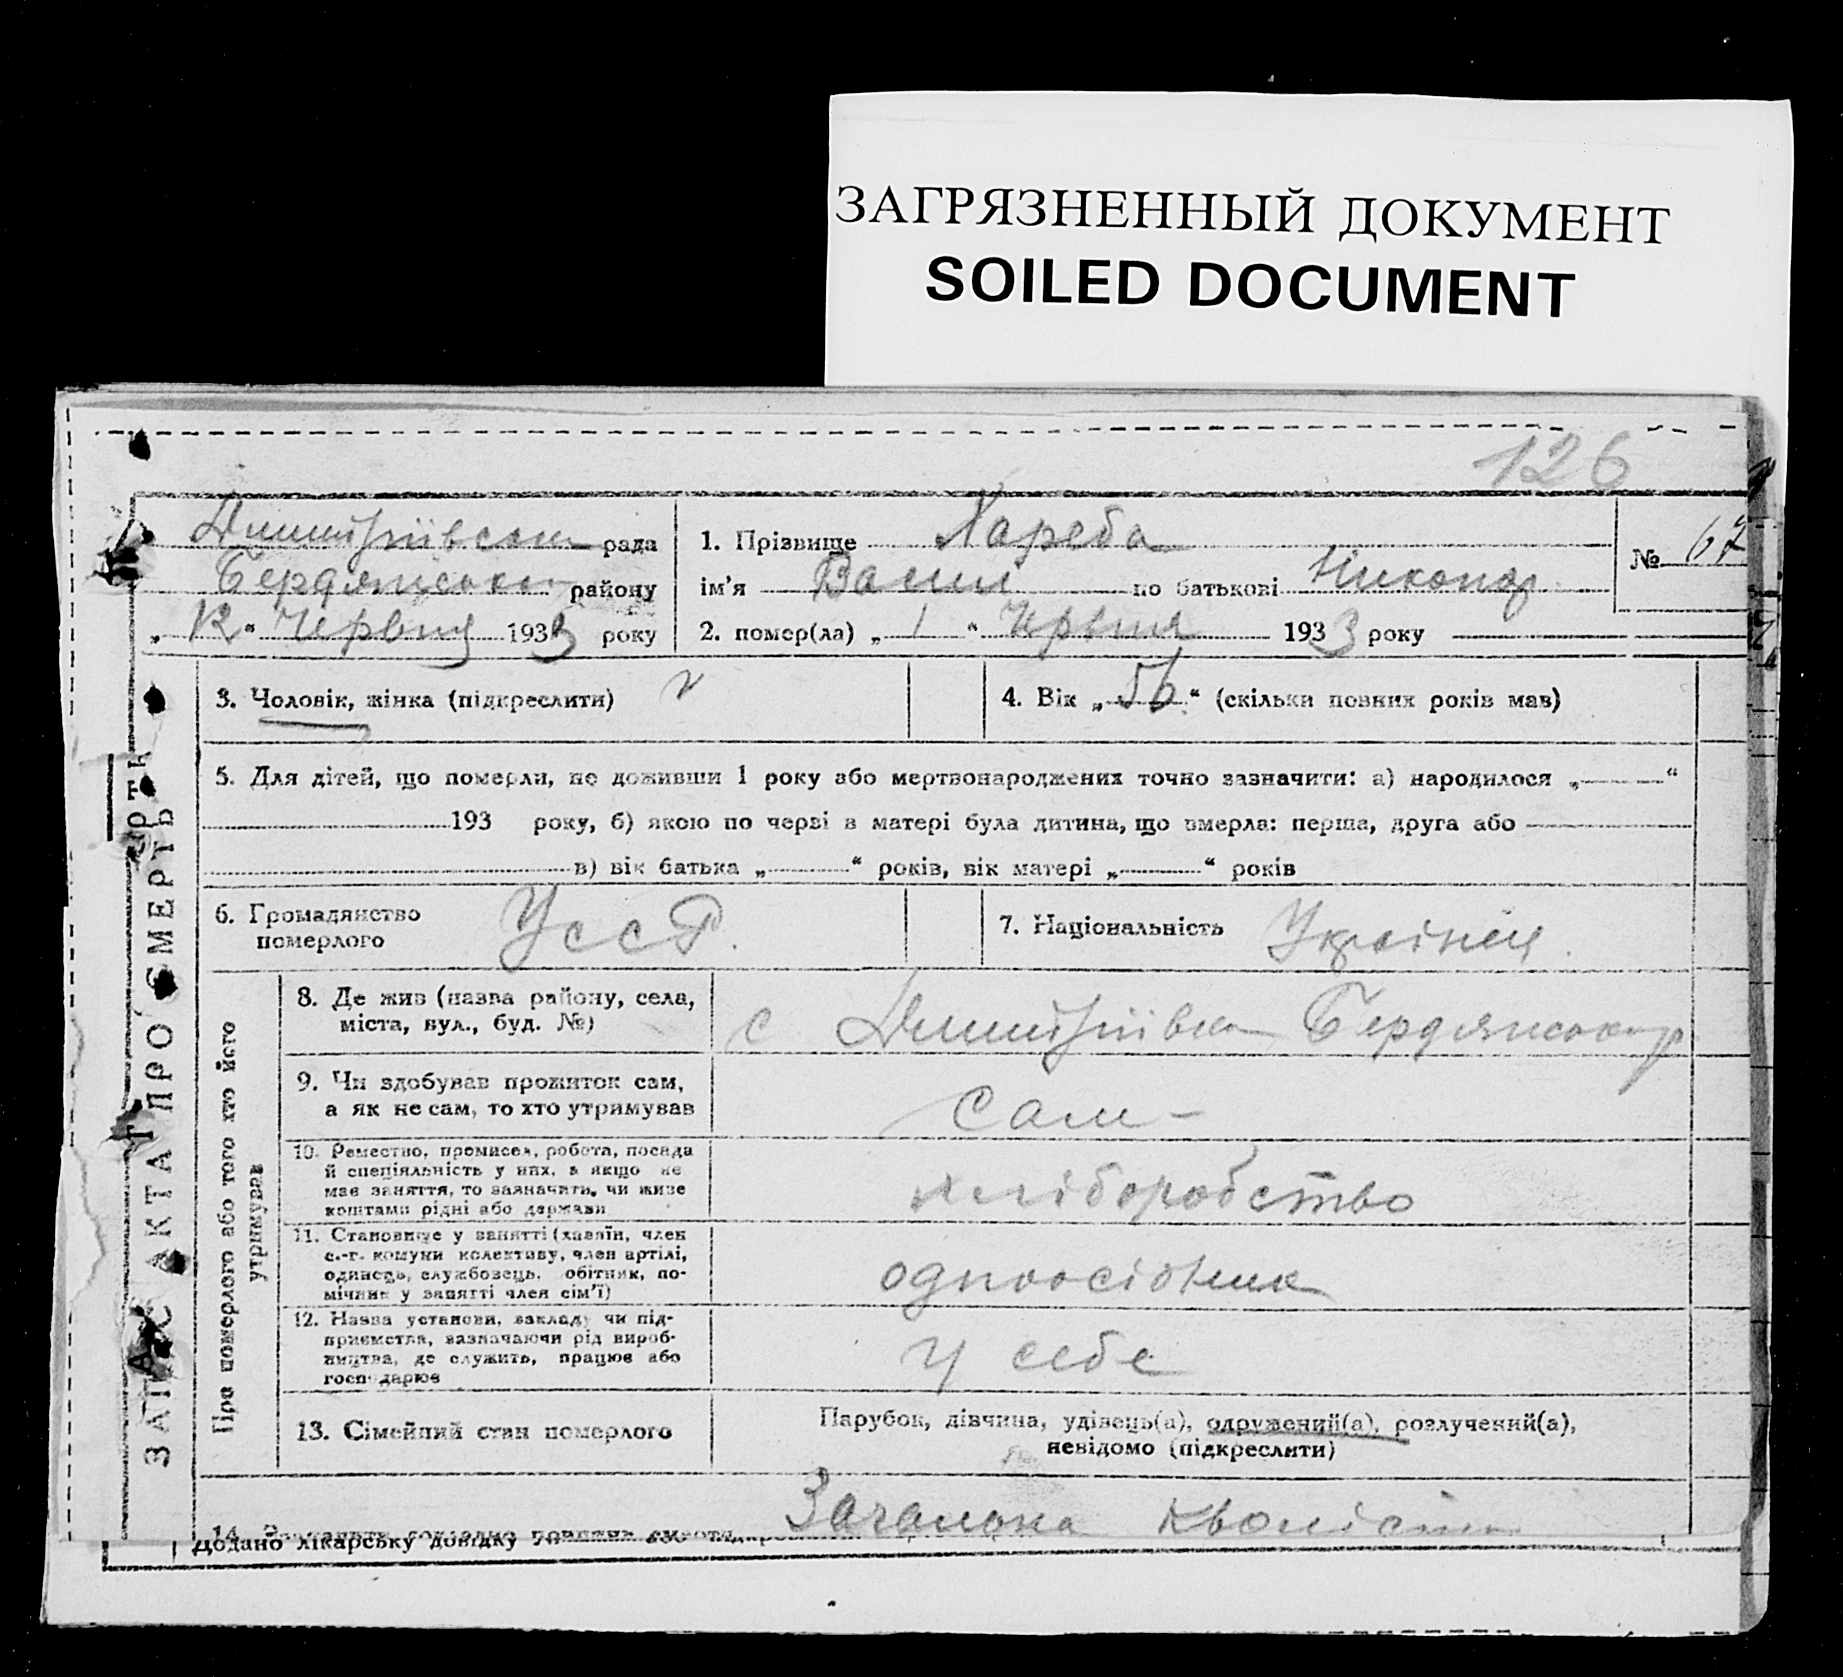 ЗАГРЯЗНЕННЫЙ ДОКУМЕНТ
SOILED DOCUMENT
126
Дмитріівська рада
Бердянського району
„12“ Червня 1933 року
1. Прізвище Хареба
ім’я Васил по батькові Никонор
2. помер(ла) „1“ Червня 1933 року
№ 67
ЗАПИС АКТА ПРО СМЕРТЬ
3. Чоловік, жінка (підкреслити)
4. Вік „56“ (скільки повних років мав)
5. Для дітей, що померли, не доживши 1 року або мертвонароджених точно зазначити: а) народилося „ “
193 року, б) якою по черзі в матері була дитина, що вмерла: перша, друга або
в) вік батька „ “ років, вік матері „ “ років
6. Громадянство
померлого УССР.
7. Національність Українец.
Про померлого або того хто його
утримував
8. Де жив (назва району, села,
міста, вул., буд. №)
с Дмитріівка Бердянськ р
9. Чи здобував прожиток сам,
а як не сам, то хто утримував
Сам -
10. Ремество, промисел, робота, посада
й спеціяльність у них, а якщо не
має заняття, то зазначити, чи живе
коштами рідні або держави
хліборобство
11. Становище у занятті (хазяїн, член
с.-г. комуни колективу, член артілі,
одинець, службовець, обітник, по-
мічник у занятті член сім’ї)
одноосібник
12. Назва установи, закладу чи під-
приємства, зазначаючи рід вироб-
ництва, де служить, працює або
господарює
у себе
13. Сімейний стан померлого
Парубок, дівчина, удівець(а), одружений(а), розлучений(а),
невідомо (підкреслити)
14.
Загальна кволість
Додано лікарську довідку